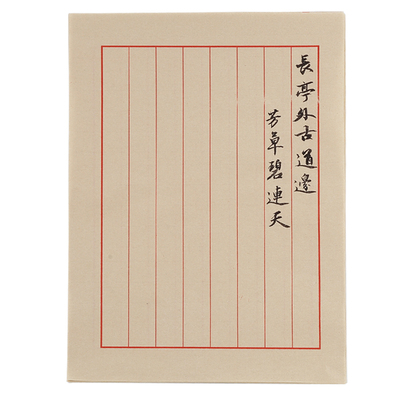 長亭外古道邊
芳草碧連天